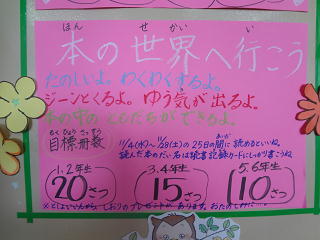 ほん せかい い
本の世界へ行こう
たのしいよ。わくわくするよ。
シーンとくるよ。ゆう気が出るよ。
本の中のともだちができるよ。
もくひょうさっすう
目標冊数
11/4(水)〜11/28(土)の25日の間に読めるといいね。
読んだ本のだい名は読書記録カードにしっかり書こうね
1.2年生
20さつ
3.4年生
15さつ
5.6年生
10さつ
しおりのプレゼントがあります。おたのしみに